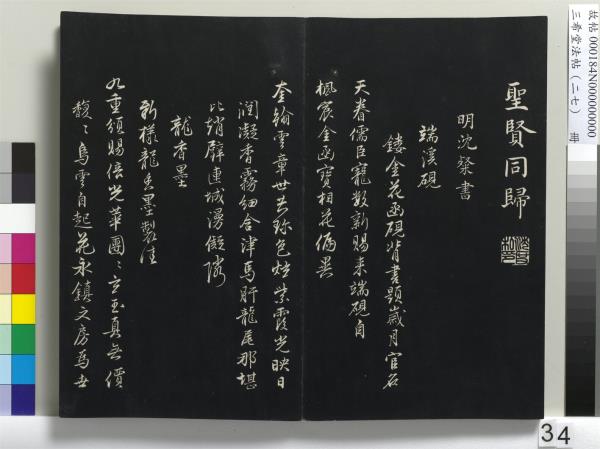 聖賢同歸
明沈粲書
端溪硯
鏤金花函硯背書題歲月官名
天眷儒臣寵數新賜来端硯自
楓宸金函寶相花偏異
奎翰雲章世共珎色炫紫霞光映日
潤凝香霧細含津馬肝龍尾那堪
比趙璧連城漫儗隣
龍香墨
新樣龍香墨製佳
九重頒賜倍光華團〻玄玉真無價
馥〻烏雲自起花永鎮文房為世
故帖 000184N000000000
三希堂法帖(二七) 冊
34